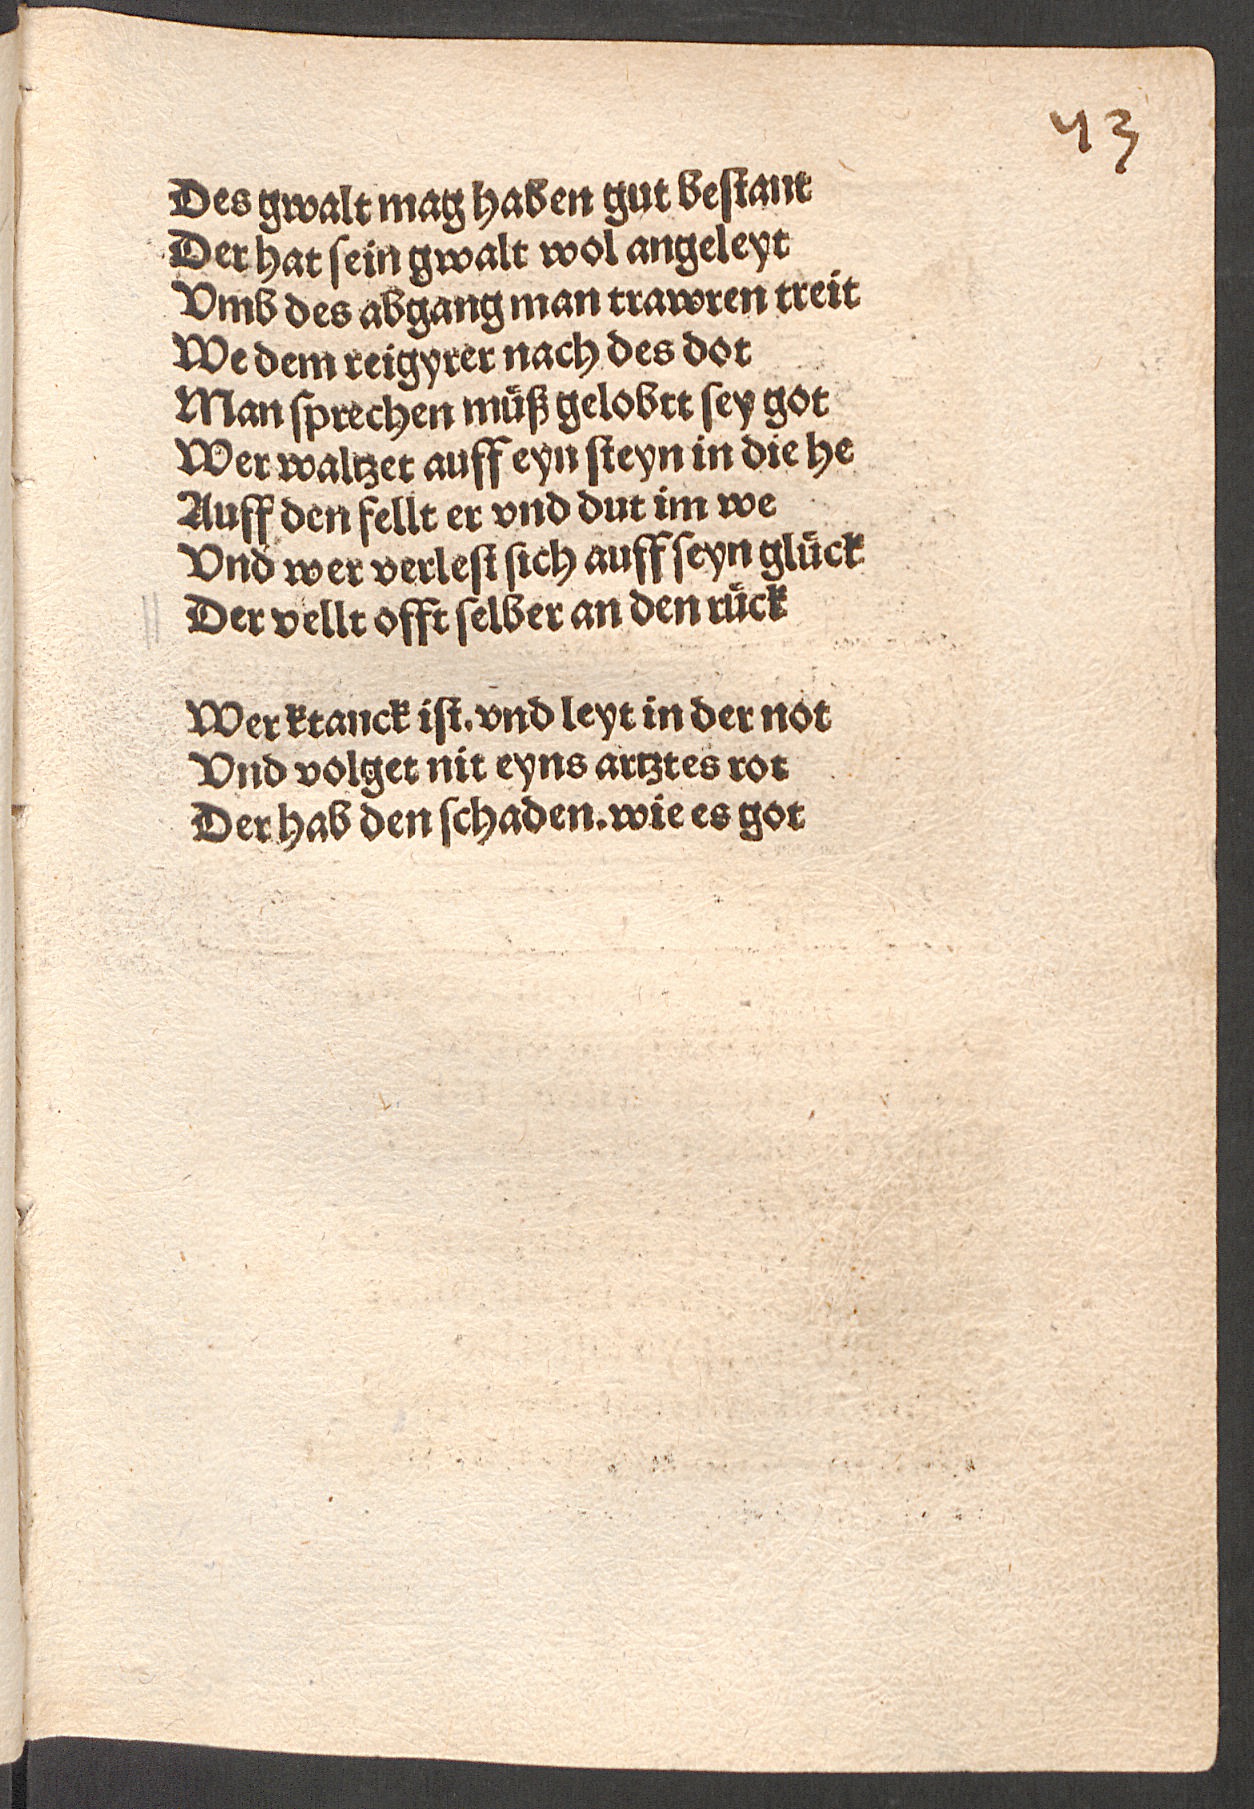 43
Des gwalt mag haben gut beſtant
Der hat ſein gwalt wol angeleyt
Vmb des abgang man trawren treit
We dem reigyrer nach des dot
Man ſprechen muͤß gelobtt ſey got
Wer waltzet auff eyn ſteyn in die he
Auff den fellt er vnd dut im we
Vnd wer verleſt ſich auff ſeyn gluͤck
Der vellt offt ſelber an den ruͤck
Wer ktanck iſt. vnd leyt in der not
Vnd volget nit eyns artztes rot
Der hab den ſchaden. wie es got